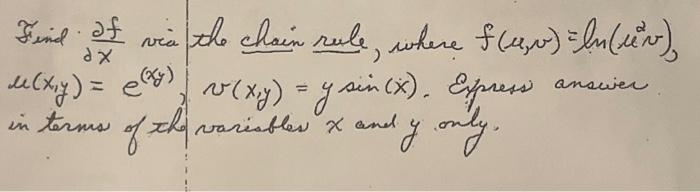 Find ∂f/∂x via the chain rule, where f(u,v) = ln(u²v),
u(x,y) = e^(xy), v(x,y) = y sin(x). Express answer
in terms of the variables x and y only.